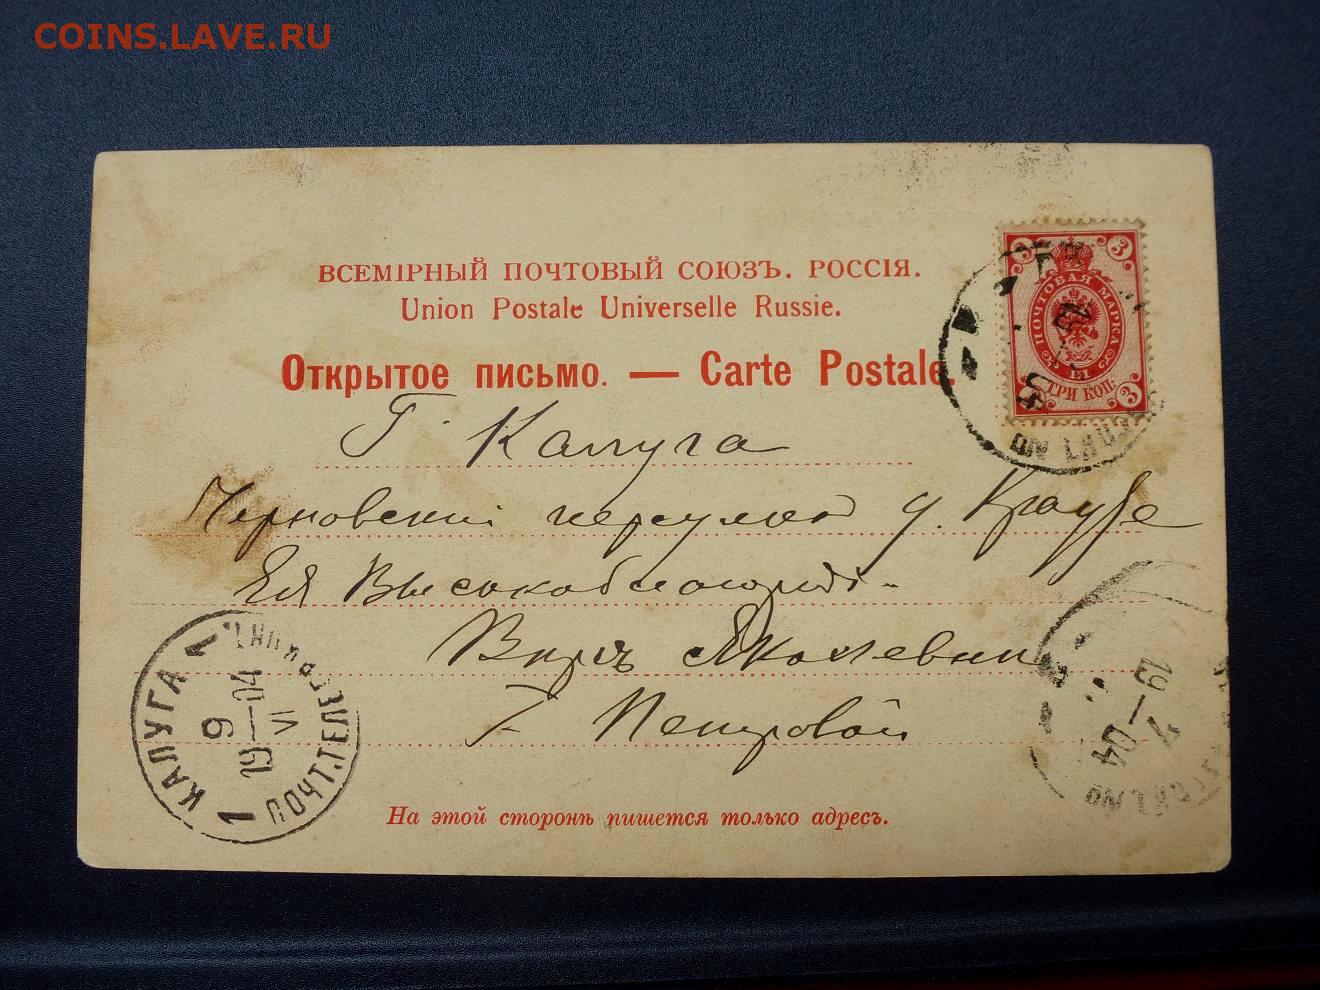 COINS.LAVE.RU
ВСЕМІРНЫЙ ПОЧТОВЫЙ СОЮЗЪ. РОССІЯ.
Union Postale Universelle Russie.
Открытое письмо. — Carte Postale.
3 3
ПОЧТОВАЯ МАРКА
ТРИ КОП:
3
04
Г. Калуга
Черновский переулок д. Краузе
Ея Высокоблагородію
Вѣрѣ Яковлевнѣ
Г. Петровой
1 КАЛУГА 1
9
VI
19—04
ПОЧТ.ТЕЛЕГР.
19—04
7
На этой сторонѣ пишется только адресъ.